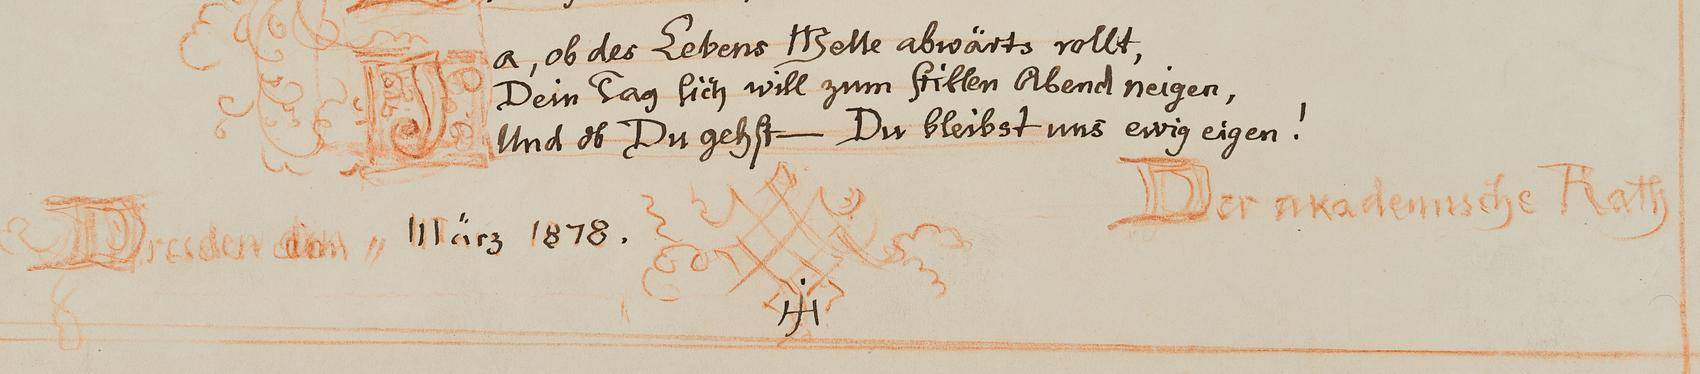 Ja, ob des Lebens Welle abwärts rollt,
Dein Tag sich will zum stillen Abend neigen,
Und ob Du gehst — Du bleibst uns ewig eigen!
Der akademische Rath
Dresden den „ März 1878.